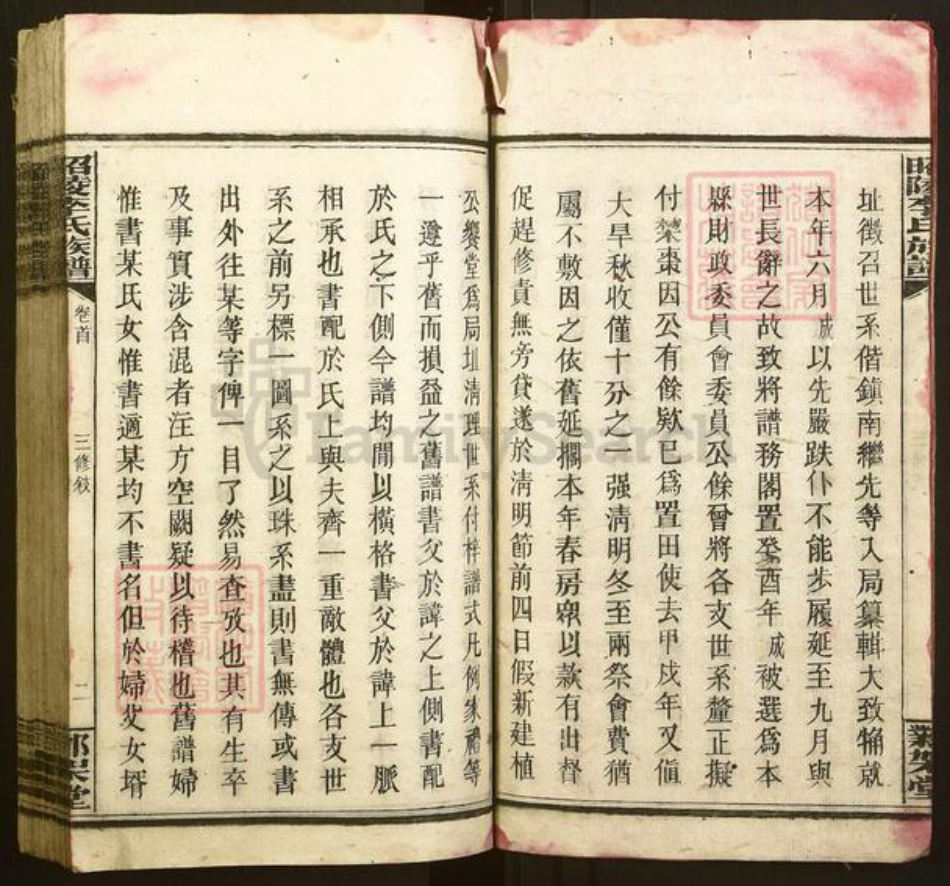 址徵召世系偕鎮南繼先等入局纂輯大致犓就
本年六月誠以先嚴跌仆不能步履延至九月與
世長辭之故致將譜務閣置癸酉年誠被選爲本
縣財政委員會委員公餘曾將各支世系釐正擬
付棃棗因公有餘欵已爲置田使去甲戍年又値
大旱秋收僅十分之一强淸明冬至兩祭會費猶
屬不敷因之依舊延擱本年春房衆以款有出督
促趕修責無旁貸遂於淸明節前四日假新建植
公饗堂爲局址淸理世系付梓譜式凡例家禮等
一遵乎舊而損益之舊譜書父於諱之上側書配
於氏之下側今譜均閒以橫格書父於諱上一脈
相承也書配於氏上與夫齊一重敵體也各支世
系之前另標一圖系之以珠系盡則書無傳或書
出外往某等字俾一目了然易查攷也其有生卒
及事實涉含混者注方空闕疑以待稽也舊譜婦
惟書某氏女惟書適某均不書名但於婦父女壻
昭陵李氏族譜
卷首
三修敍
二
FamilySearch